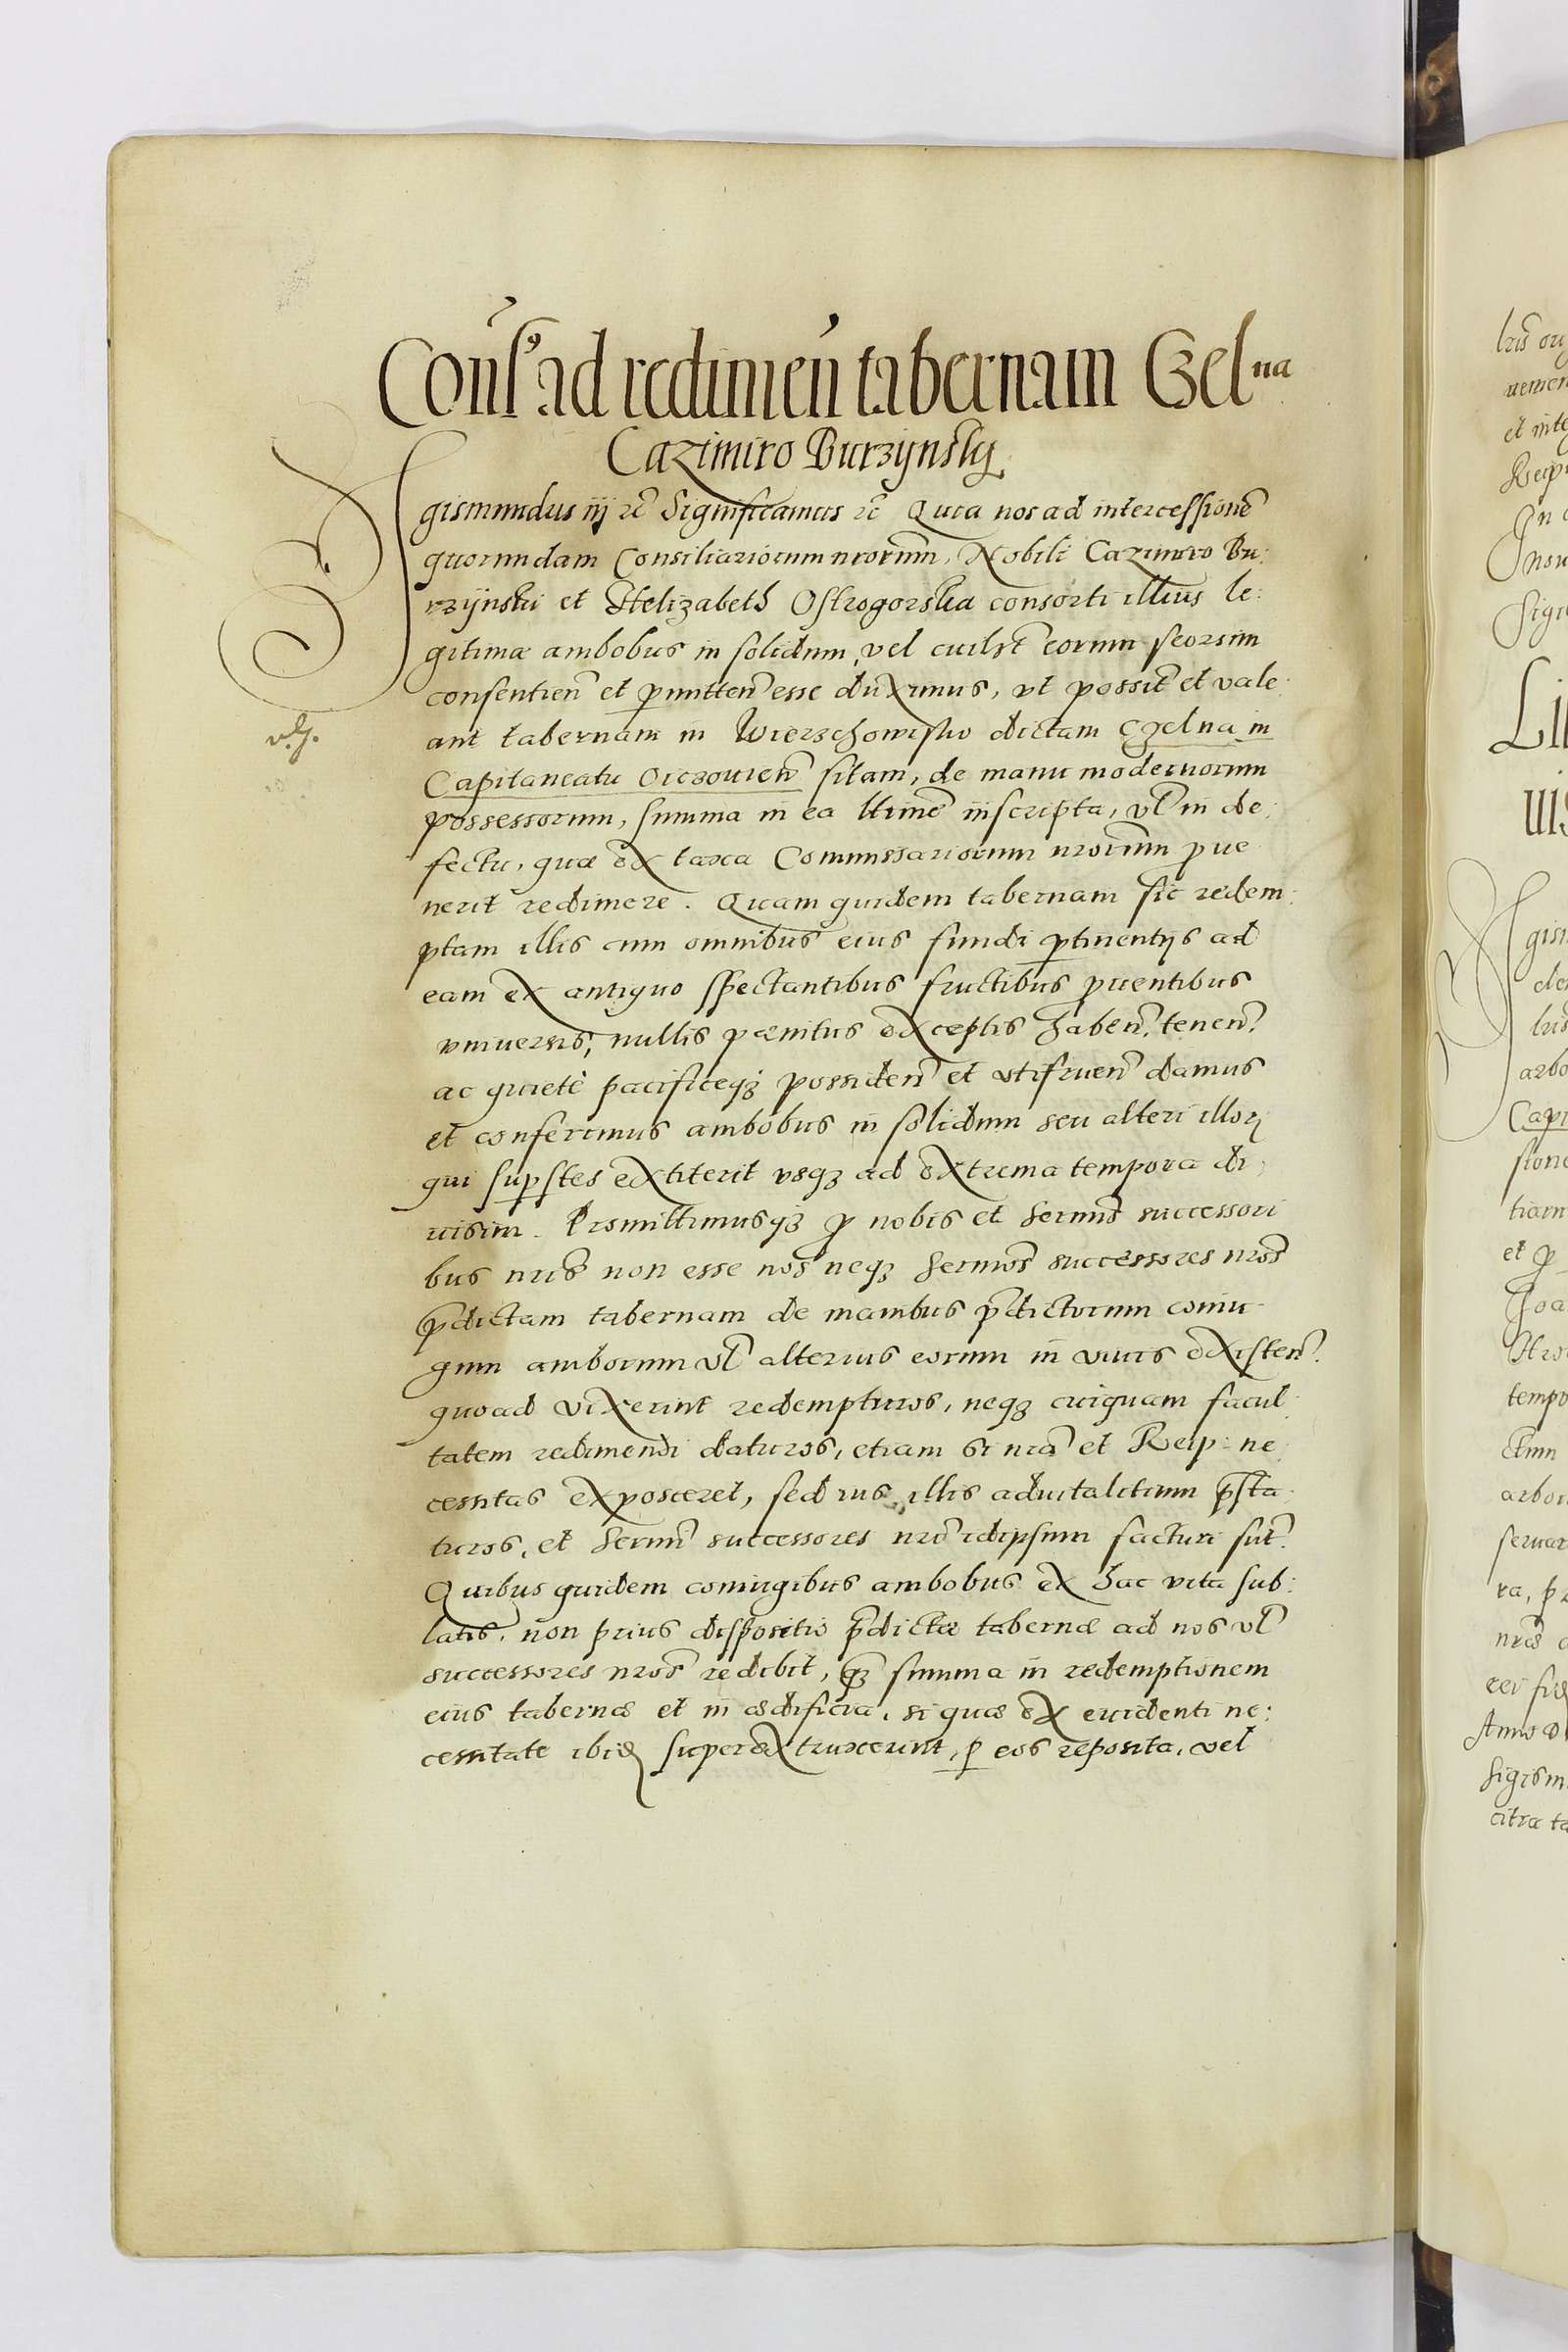 Cons̃ ad redimeñ tabernam Czel na
Cazimiro Burzÿnskj
Sigismundus iij rc̃ Significamus rc̃ Quia nos ad intercessionẽ
quorundam Consiliariorum nrorum̃, Nobili Cazimiro Bu:
rzÿnski et Helizabeth Ostrogorska consorti illius le:
gitimæ ambobus in solidum, vel cuilt̃ eorum seorsim
consentien̄ et p̄mitten̄ esse duximus, vt possit̄ et vale
ant tabernam in Wierzchowisko dictam Czelna in
v. g.
Capitaneatu Oiczouien̄ sitam, de manu modernorum
possessorum, summa in ea ltimẽ inscripta, vl̃ in de:
fectu, quæ ex taxa Commissariorum nrorum̃ p̄ue
nerit redimere. Quam quidem tabernam sic redem:
ptam illis cum omnibus eius fundi p̄tinentijs ad
eam ex antiquo spectantibus fructibus p̄uentibus
vniuersis, nullis pænitus exceptis haben̄, tenen̄
ac quietè pacificeq; possiden̄ et vtifruen̄ damus
et conferimus ambobus in solidum seu alteri illor̨
qui sup̱stes extiterit vsq; ad extrema tempora di
uisim. Promittimusq; p̱ nobis et Sermis̃ successori
bus nris̃ non esse nos neq; Sermos̃ successores nros̃
p̄dictam tabernam de manibus p̄dictorum coniu
gum amborum vl̃ alterius eorum in viuis existen̄.
quoad vixerint redempturos, neq; cuiquam facul
tatem redimendi daturos, etiam si nrã et Reip: ne
cessitas exposceret, sed ius illis aduitalitium p̄sta
turos, et Sermĩ successores nrĩ idipsum facturi sūt.
Quibus quidem coniugibus ambobus ex hac vita sub:
latis, non prius dispositio p̄dictæ tabernæ ad nos vl̃
successores nros̃ redibit, q̃; summa in redemptionem
eius tabernæ et in ædificia, si quæ ex euidenti ne:
cessitate ibid̨ superextruxerint, p̱ eos reposita, vel